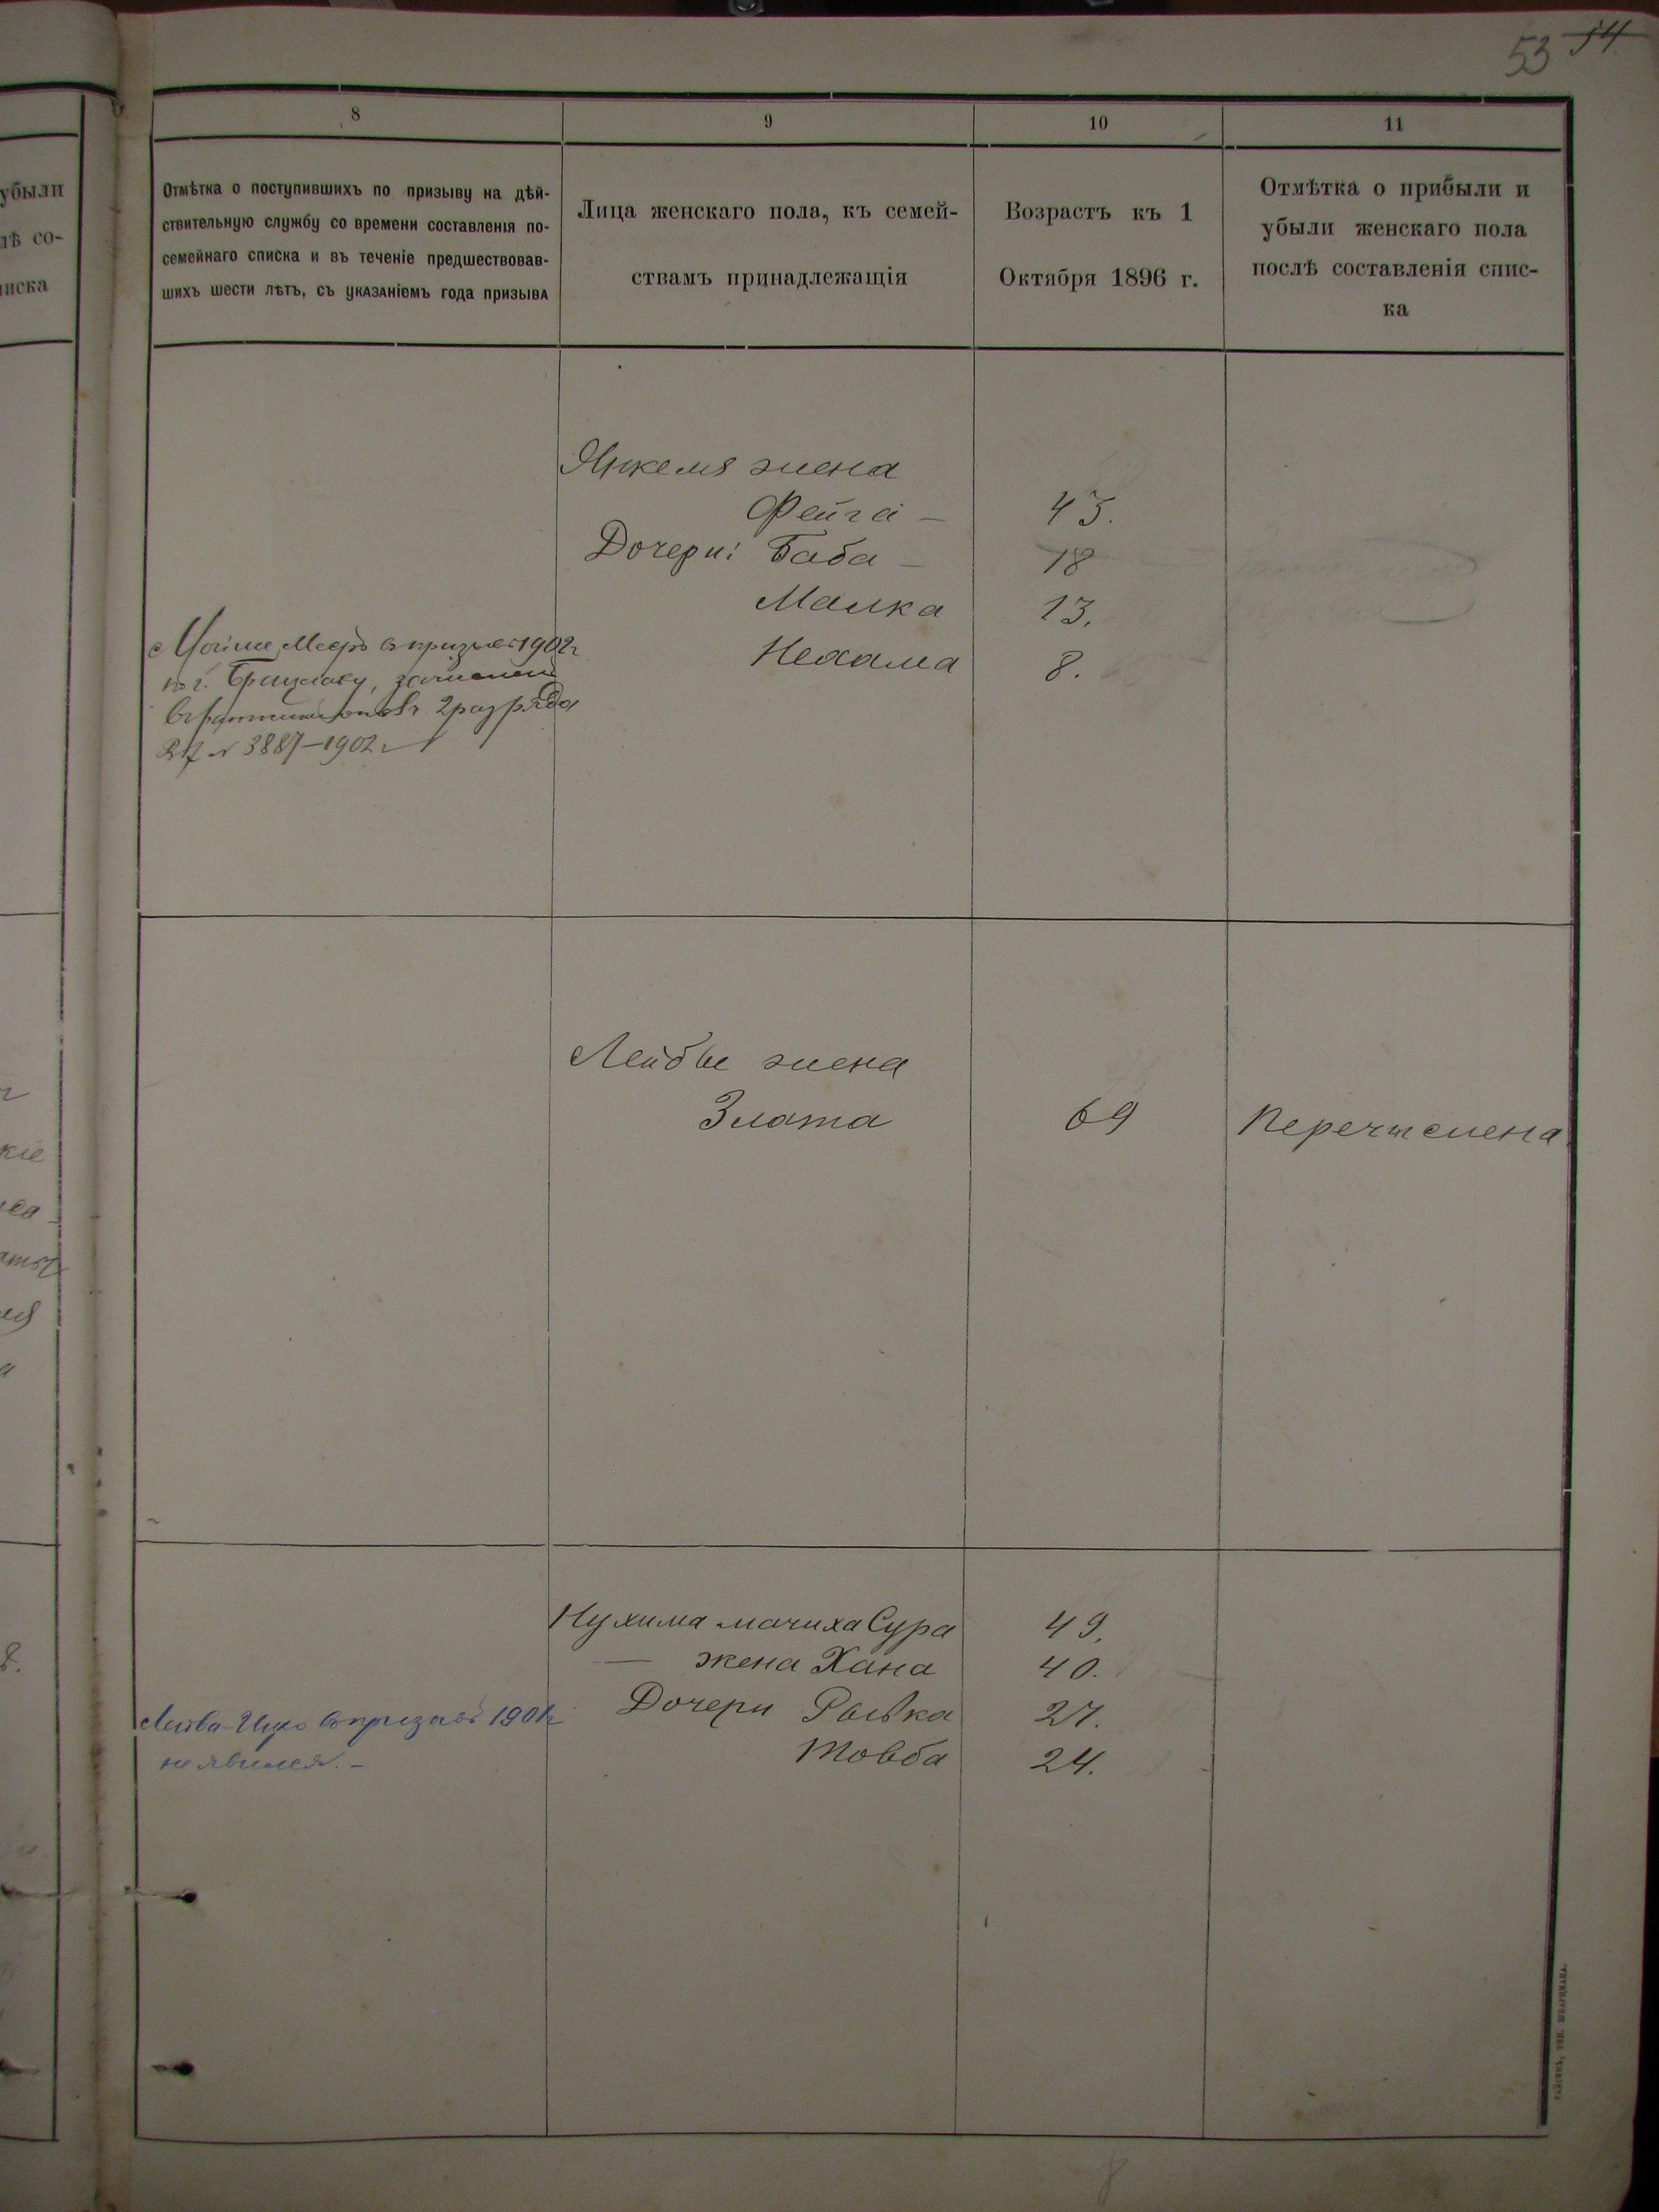 53 54
8
9
10
11
Отмѣтка о поступившихъ по призыву на дѣй-
ствительную службу со времени составленія по-
семейнаго списка и въ теченіе предшествовав-
шихъ шести лѣтъ, съ указаніемъ года призыва
Лица женскаго пола, къ семей-
ствамъ принадлежащія
Возрастъ къ 1
Октября 1896 г.
Отмѣтка о прибыли и
убыли женскаго пола
послѣ составленія спис-
ка
убыли
лѣ со-
писка
Янкеля жена
Фейга — 43.
Дочери: Баба — 18
Малка 13.
Нехама 8.
Мойше Мееръ въ призывѣ 1902 г
по г. Брацлаву, зачисленъ
2 разряда
№ 3887–1902 г
Лейбы жена
Злата 69 Перечислена
Нухима мачиха Сура 49.
— жена Хана 40.
Дочери Рывка 27.
Товба 24.
Лейба-Ицко въ призывѣ 1901 г
не явился. –